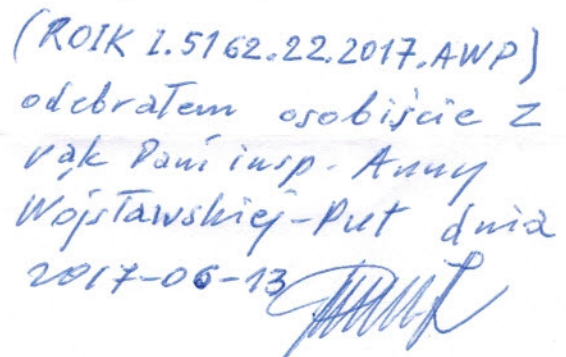 (ROIK I.5162.22.2017.AWP)
odebrałem osobiście z
rąk Pani insp. Anny
Wojsławskiej-Put dnia
2017-06-13